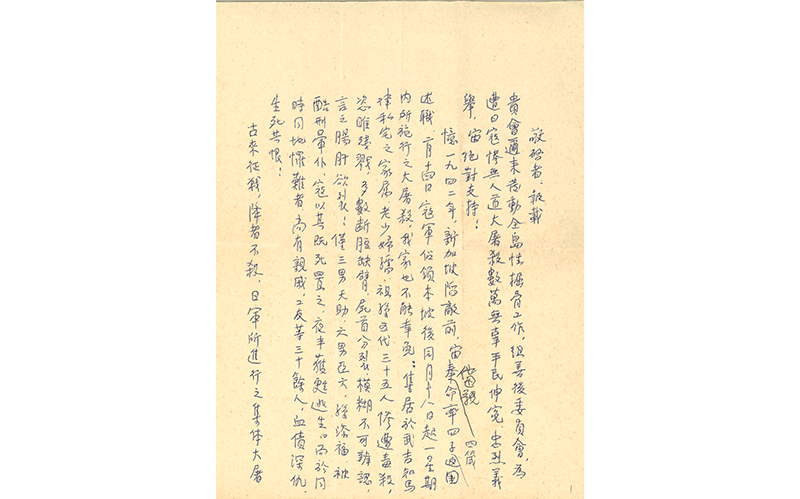 敬啓者：報載
貴會邇来發動全島性掘骨工作，組善後委員會，為
遭日寇慘無人道大屠殺數萬無辜平民伸冤，忠烈義
舉，宙絕對支持！
憶一九四二年，新加坡陷敵前，宙奉命率四子返国
述職，二月十五日寇軍佔領本坡後同月十八日起一星期
内所施行之大屠殺，我家也不能幸免：集居於武吉知馬
律私宅之家屬老少婦孺，祖孫五代三十五人慘遭毒殺，
恣睢殘戮，多數断脰缺臂，屍首分裂模糊不可辨認，
言之腸肝欲裂！僅三男天助，六男亞六，孫添福，被
酷刑暈仆，寇以其既死置之，夜半獲甦逃生；而於同
時同地罹難者，尚有親戚，工友等三十餘人，血債深仇，
生死共恨！
古來征戰，降者不殺，日軍所進行之集体大屠